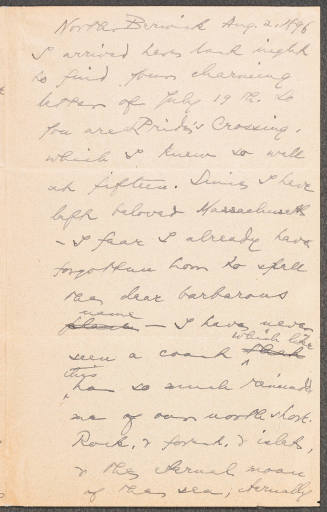 North Berwick Aug. 2, 1896
I arrived here last night
to find your charming
letter of July 19th. So
you are at Pride's Crossing,
which I knew so well
at fifteen. Since I have
left beloved Massachusetts
– I fear I already have
forgotten how to spell
the dear barbarous
name
place – I have never
which like
seen a coast that
this
has so much reminded
me of our north shore.
Rock, & forest, & islets,
& the eternal moan
of the sea, eternally